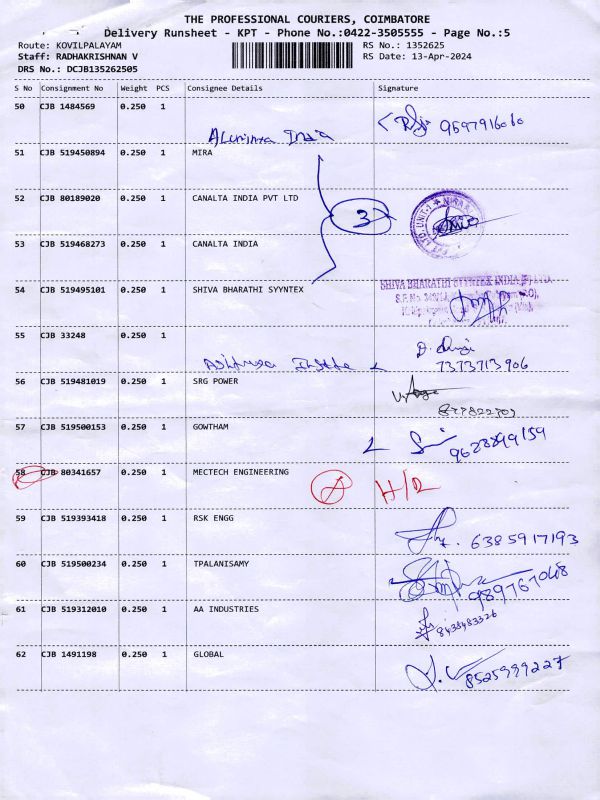 THE PROFESSIONAL COURIERS, COIMBATORE
Delivery Runsheet - KPT - Phone No.:0422-3505555 - Page No.:5
Route: KOVILPALAYAM RS No.: 1352625
Staff: RADHAKRISHNAN V RS Date: 13-Apr-2024
DRS No.: DCJB135262505
S No Consignment No Weight PCS Consignee Details Signature
50 CJB 1484569 0.250 1
9597916060
India
51 CJB 519450894 0.250 1 MIRA
52 CJB 80189020 0.250 1 CANALTA INDIA PVT LTD
3
53 CJB 519468273 0.250 1 CANALTA INDIA
54 CJB 519495101 0.250 1 SHIVA BHARATHI SYYNTEX
SHIVA BHARATHI SYYNTEX INDIA
55 CJB 33248 0.250 1
7373713906
56 CJB 519481019 0.250 1 SRG POWER
57 CJB 519500153 0.250 1 GOWTHAM
58 CJB 80341657 0.250 1 MECTECH ENGINEERING
59 CJB 519393418 0.250 1 RSK ENGG
6385917193
60 CJB 519500234 0.250 1 TPALANISAMY
61 CJB 519312010 0.250 1 AA INDUSTRIES
8438483326
62 CJB 1491198 0.250 1 GLOBAL
8525999227